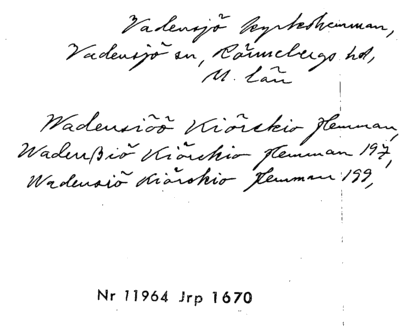 Vadensjö kyrkohemman,
Vadensjö sn, Rönnebergs hd,
M. län
Wadensiöö Kiörckio Hemman,
Wadenßiö Kiörckio Hemman 197,
Wadensiö Kiörckio Hemman 199,
Nr 11964 Jrp 1670